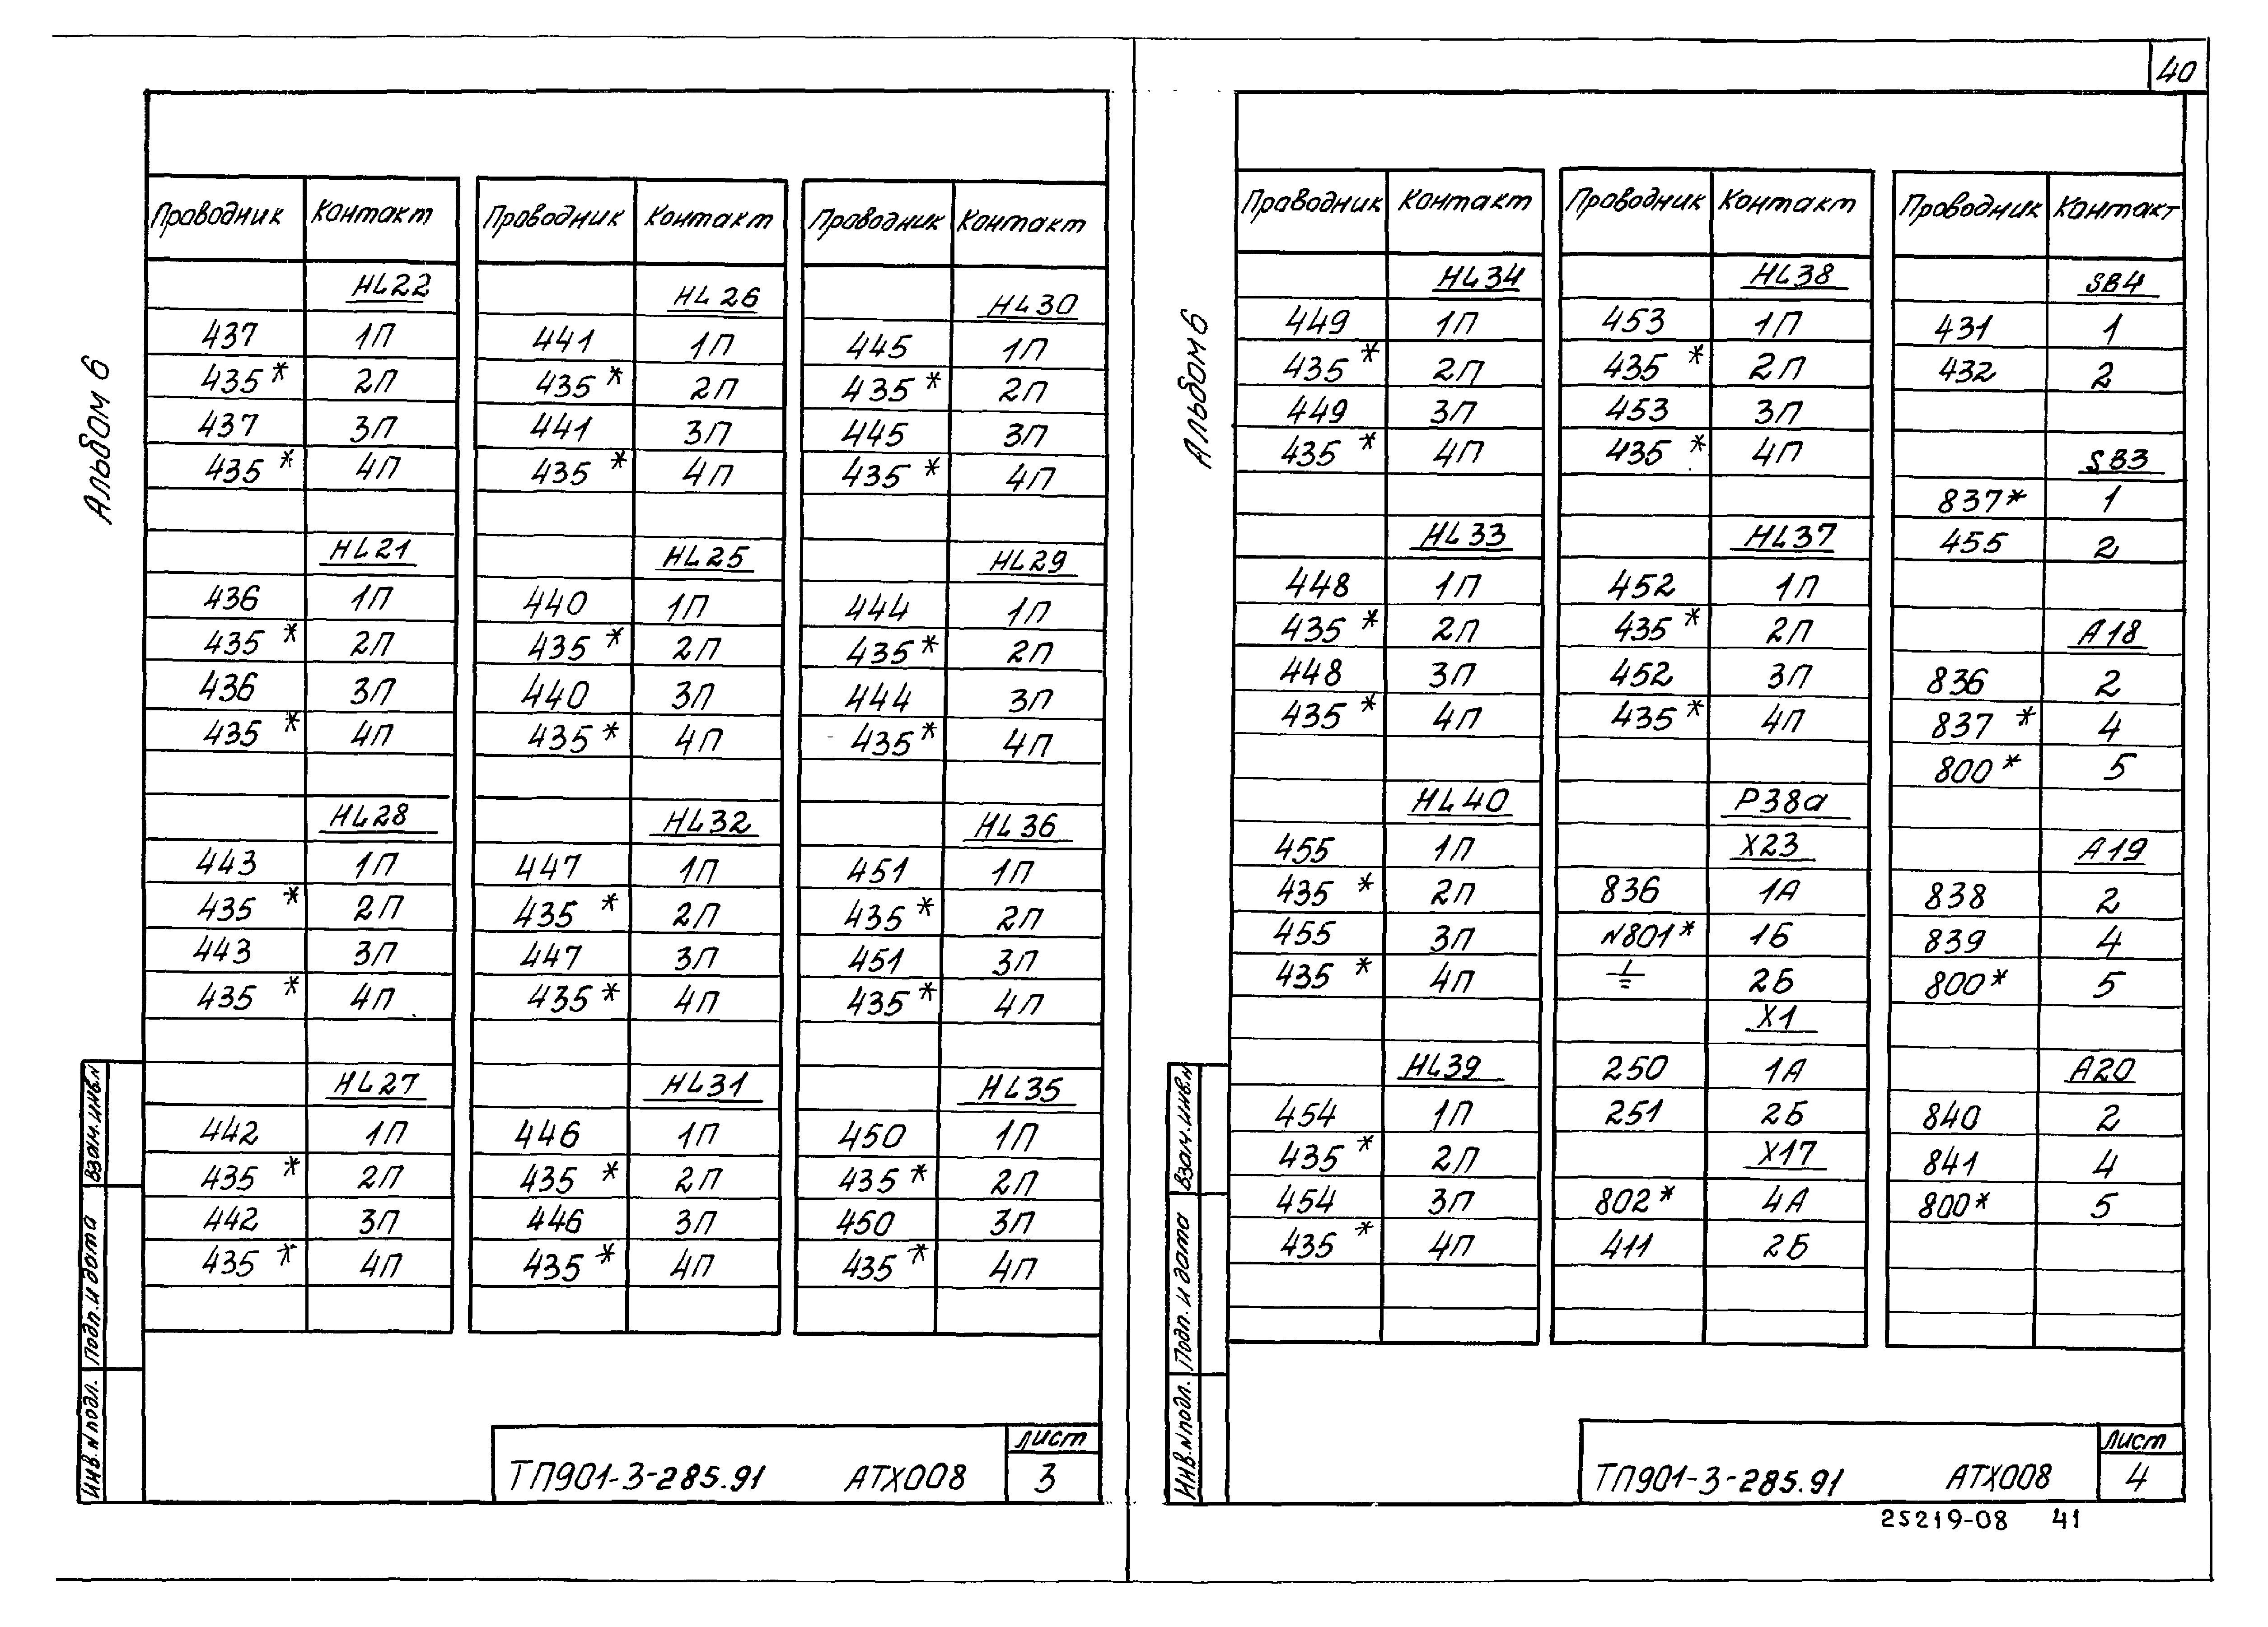 40
Альбом 6
Проводник Контакт Проводник Контакт Проводник Контакт
HL22 HL26 HL30
437 1П 441 1П 445 1П
435* 2П 435* 2П 435* 2П
437 3П 441 3П 445 3П
435* 4П 435* 4П 435* 4П
HL21 HL25 HL29
436 1П 440 1П 444 1П
435* 2П 435* 2П 435* 2П
436 3П 440 3П 444 3П
435* 4П 435* 4П 435* 4П
HL28 HL32 HL36
443 1П 447 1П 451 1П
435* 2П 435* 2П 435* 2П
443 3П 447 3П 451 3П
435* 4П 435* 4П 435* 4П
HL27 HL31 HL35
442 1П 446 1П 450 1П
435* 2П 435* 2П 435* 2П
442 3П 446 3П 450 3П
435* 4П 435* 4П 435* 4П
Взам.инв.N
Подп. и дата
Инв.N подл.
ТП901-3-285.91 АТХ008 Лист 3
Альбом 6
Проводник Контакт Проводник Контакт Проводник Контакт
HL34 HL38 SB4
449 1П 453 1П 431 1
435* 2П 435* 2П 432 2
449 3П 453 3П
435* 4П 435* 4П SB3
837* 1
HL33 HL37 455 2
448 1П 452 1П
435* 2П 435* 2П A18
448 3П 452 3П 836 2
435* 4П 435* 4П 837* 4
800* 5
HL40 P38a
455 1П X23 A19
435* 2П 836 1А 838 2
455 3П N801* 1Б 839 4
435* 4П ⏚ 2Б 800* 5
X1
HL39 250 1А A20
454 1П 251 2Б 840 2
435* 2П X17 841 4
454 3П 802* 4А 800* 5
435* 4П 411 2Б
Взам.инв.N
Подп. и дата
Инв.N подл.
ТП901-3-285.91 АТХ008 Лист 4
25219-08 41